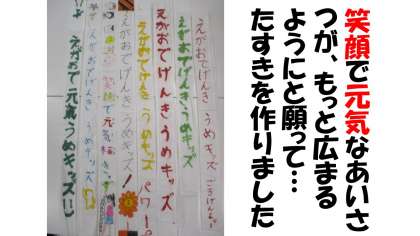 笑顔で元気なあいさ
つが、もっと広まる
ようにと願って…
たすきを作りました
えがおでげんき うめキッズ
えがおでげんき うめキッズ
えがおでげんき うめキッズ
えがおでげんき うめキッズ パワー
えがおでげんき うめキッズ！
えがおで元気 うめキッズ